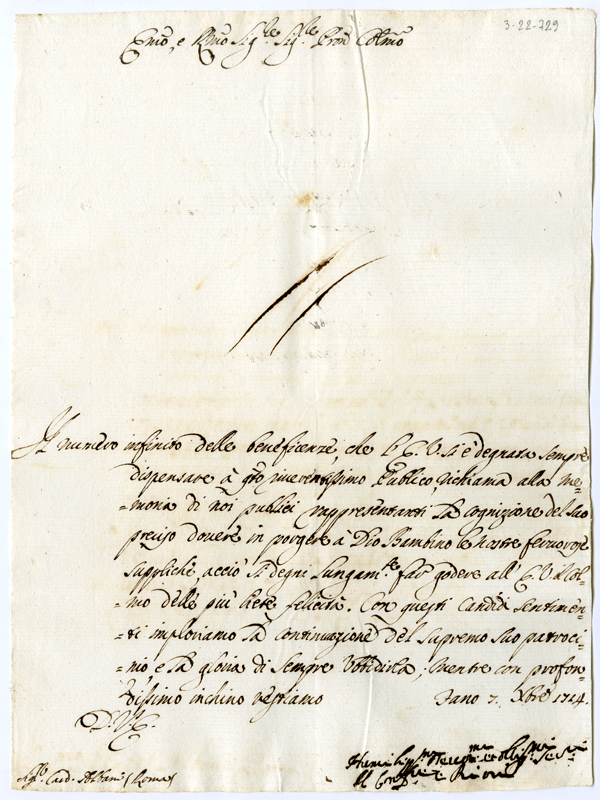 3-22-729
Emo, e Rmo Sigre Sigre Pron Colmo
Il numero infinito delle beneficenze, che l'E. V. si è degnata sempre
dispensare à qto riverentissimo Publico, richiama alla me-
-moria di noi publici rappresentanti la cognizione del suo
preciso dovere in porgere à Dio Bambino le nostre fervorose
suppliche, acciò si degni lungamte far godere all' E. V. il col-
-mo delle più liete felicità. Con questi candidi sentimen-
-ti imploriamo la continuazione del supremo suo patroci-
-nio e la gloria di sempre obbidirla, mentre con profon-
-dissimo inchino restiamo Fano 7. Xbre 1724.
D. V. E.
Sigre Card. Albani (Roma)
Humilmi Devmi et Obligmi Servi
Il Confre e